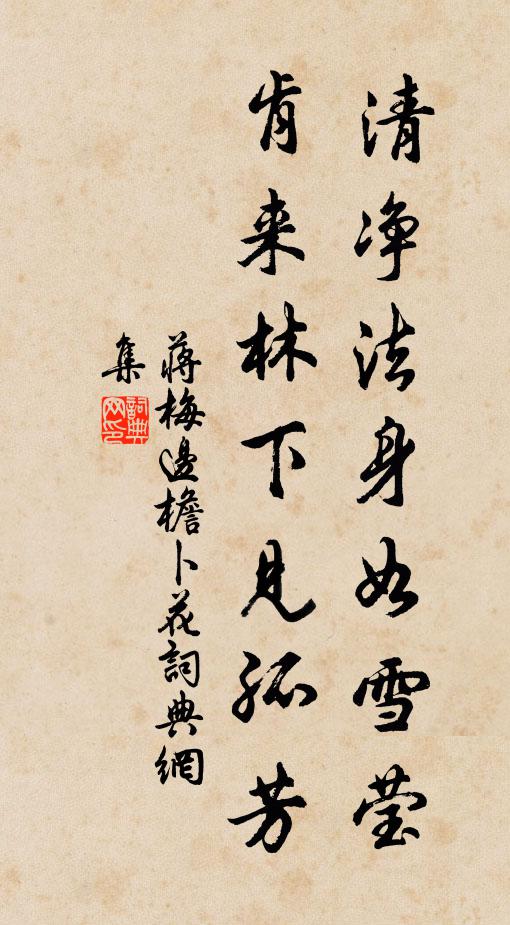 清净法身如雪莹
肯来林下见孤芳
蒋梅邊檐卜花詞典網
集
詞典網印